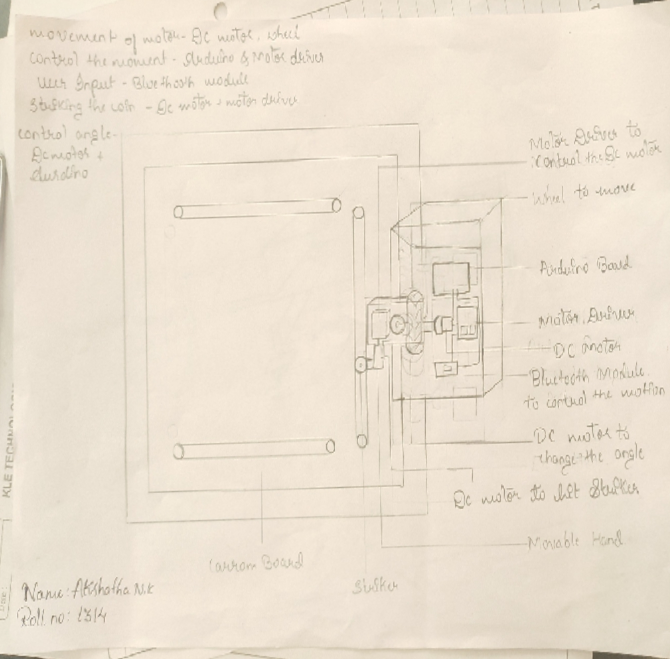 movement of motor - Dc motor, wheel
control the moment - Arduino & Motor driver
User Input - Bluethooth module
Striking the coin - Dc motor + motor driver
control angle -
Dc motor +
Arduino
Motor Driver to
control the Dc motor
Wheel to move
Arduino Board
Motor Driver
DC motor
Bluetooth Module
to control the motion
DC motor to
change the angle
Dc motor to hit Striker
Movable Hand
Carrom Board
Striker
KLE TECHNOLOG
Name: Akshatha N.K
Roll no: 1314